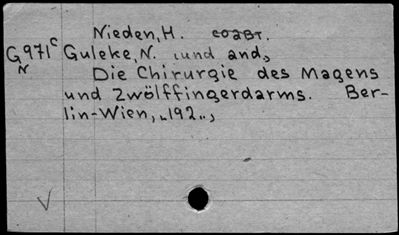 Nieden, H. соавт.
G971c Guleke, N. und and.,
N
Die Chirurgie des Magens
und Zwölffingerdarms. Ber-
lin-Wien, „192..,
V